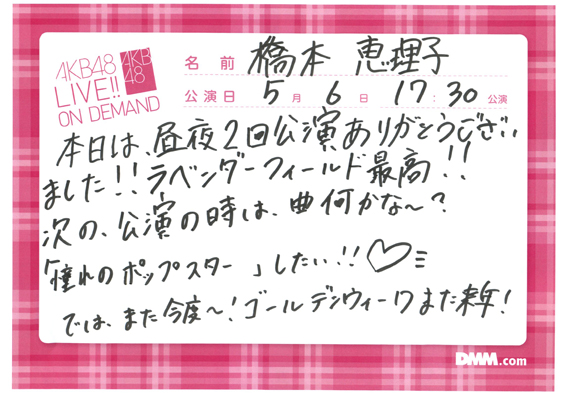 AKB48
LIVE!!
ON DEMAND
AKB
48
名前 橋本 恵理子
公演日 5月 6日 17:30公演
本日は、昼夜2回公演ありがとうござい
ました!!ラベンダーフィールド最高!!
次の、公演の時は、曲何かな〜?
「憧れのポップスター」したい!!♡
では、また今度〜!ゴールデンウィークまた来年!
DMM.com